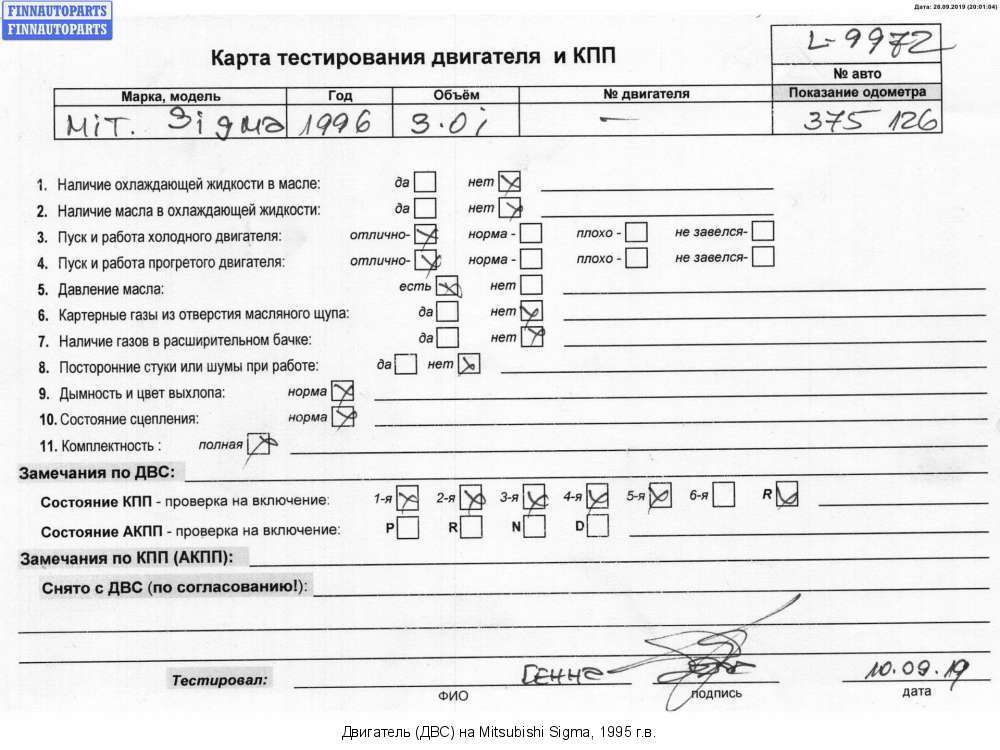 FINNAUTOPARTS
FINNAUTOPARTS
Дата: 28.09.2019 (20:01:04)
Карта тестирования двигателя и КПП
L-9972
№ авто
Марка, модель Год Объём № двигателя Показание одометра
MiT. Sigma 1996 3.0i — 375 126
1. Наличие охлаждающей жидкости в масле: да нет
2. Наличие масла в охлаждающей жидкости: да нет
3. Пуск и работа холодного двигателя: отлично- норма - плохо - не завелся-
4. Пуск и работа прогретого двигателя: отлично- норма - плохо - не завелся-
5. Давление масла: есть нет
6. Картерные газы из отверстия масляного щупа: да нет
7. Наличие газов в расширительном бачке: да нет
8. Посторонние стуки или шумы при работе: да нет
9. Дымность и цвет выхлопа: норма
10. Состояние сцепления: норма
11. Комплектность : полная
Замечания по ДВС:
Состояние КПП - проверка на включение: 1-я 2-я 3-я 4-я 5-я 6-я R
Состояние АКПП - проверка на включение: P R N D
Замечания по КПП (АКПП):
Снято с ДВС (по согласованию!):
Тестировал: Генна 10.09.19
ФИО подпись дата
Двигатель (ДВС) на Mitsubishi Sigma, 1995 г.в.